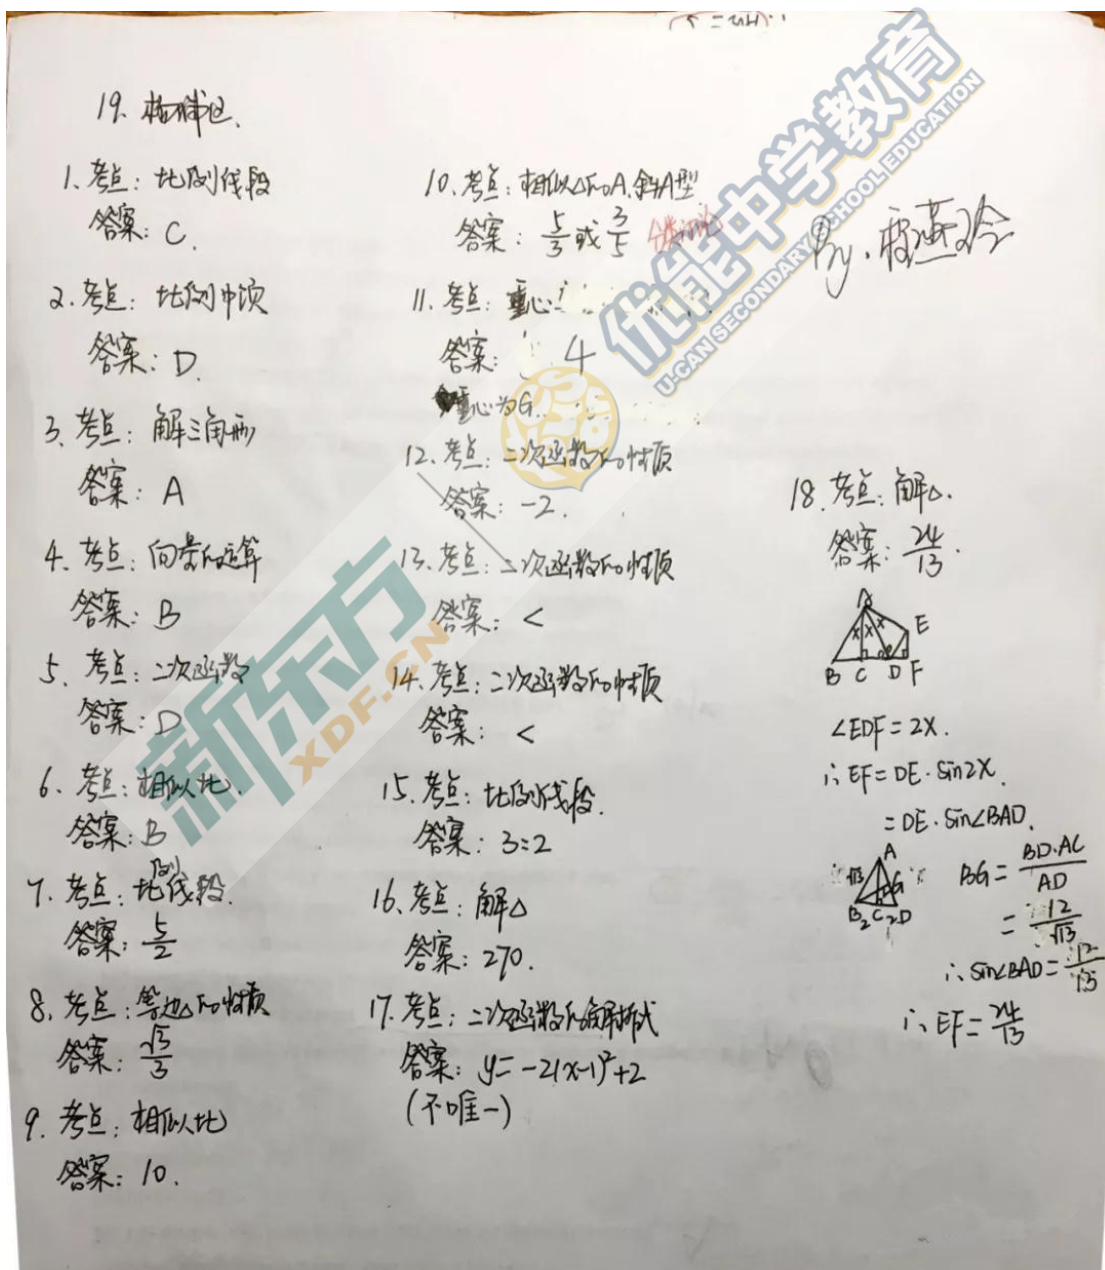 19. 杨浦区.
1. 考点: 比例线段
答案: C.
2. 考点: 比例中项
答案: D.
3. 考点: 解三角形
答案: A
4. 考点: 向量的运算
答案: B
5. 考点: 二次函数
答案: D
6. 考点: 相似比.
答案: B
7. 考点: 比例线段.
答案: 5/2
8. 考点: 等边△的性质
答案: √3/3
9. 考点: 相似比
答案: 10.
10. 考点: 相似△的A、斜A型
答案: 5/3 或 3/5 分类讨论
11. 考点: 重心
答案: 4
重心为G.
12. 考点: 二次函数的性质
答案: -2.
13. 考点: 二次函数的性质
答案: <
14. 考点: 二次函数的性质
答案: <
15. 考点: 比例线段.
答案: 3:2
16. 考点: 解△
答案: 270.
17. 考点: 二次函数的解析式
答案: y=-2(x-1)²+2
(不唯一)
By.
18. 考点: 解△.
答案: 24/13.
A
x x x
E
B C D F
∠EDF=2x.
∴EF=DE·sin2x.
=DE·sin∠BAD.
A
√13
G
B 2 C 2 D
BG=BD·AC/AD
=12/√13
∴sin∠BAD=12/13
∴EF=24/13
新东方
XDF.CN
优能中学教育
U-CAN SECONDARY SCHOOL EDUCATION